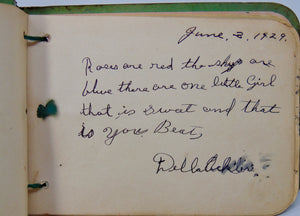 June, 3, 1929.
Roses are red the skys are
blue there are one little Girl
that is sweat and that
is you. Beat,
Della